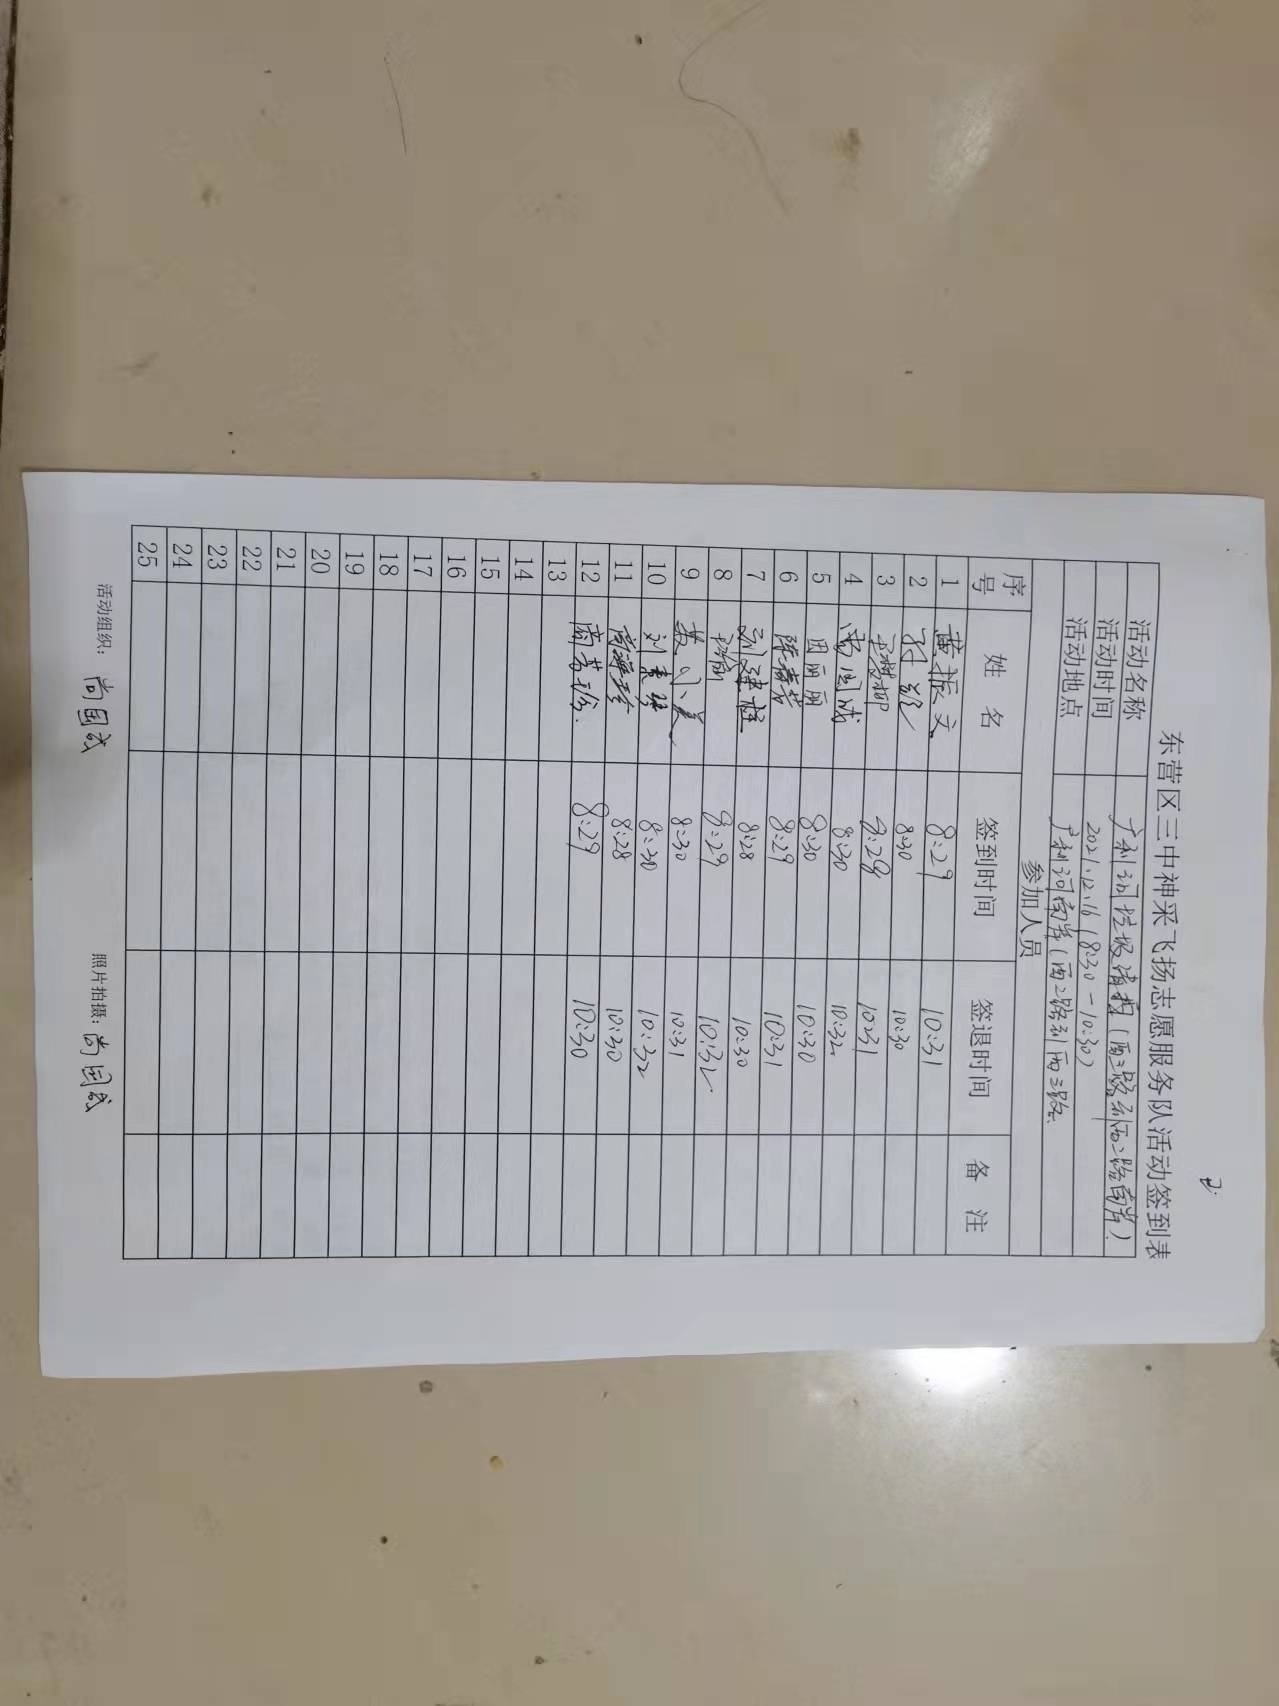 东营区三中神采飞扬志愿服务队活动签到表
活动名称 广利河垃圾清捡(西三路到西二路南岸)
活动时间 2021.12.16(8:30-10:30)
活动地点 广利河南岸(西二路到西三路
参加人员
序号 姓名 签到时间 签退时间 备注
1 黄振文 8:29 10:31
2 8:30 10:30
3 8:28 10:31
4 尚国成 8:30 10:32
5 田丽丽 8:30 10:30
6 陈春芳 8:29 10:31
7 刘建程 8:28 10:30
8 8:29 10:32
9 8:30 10:31
10 刘 8:30 10:32
11 8:28 10:30
12 8:29 10:30
13
14
15
16
17
18
19
20
21
22
23
24
25
活动组织: 尚国成 照片拍摄: 尚国成